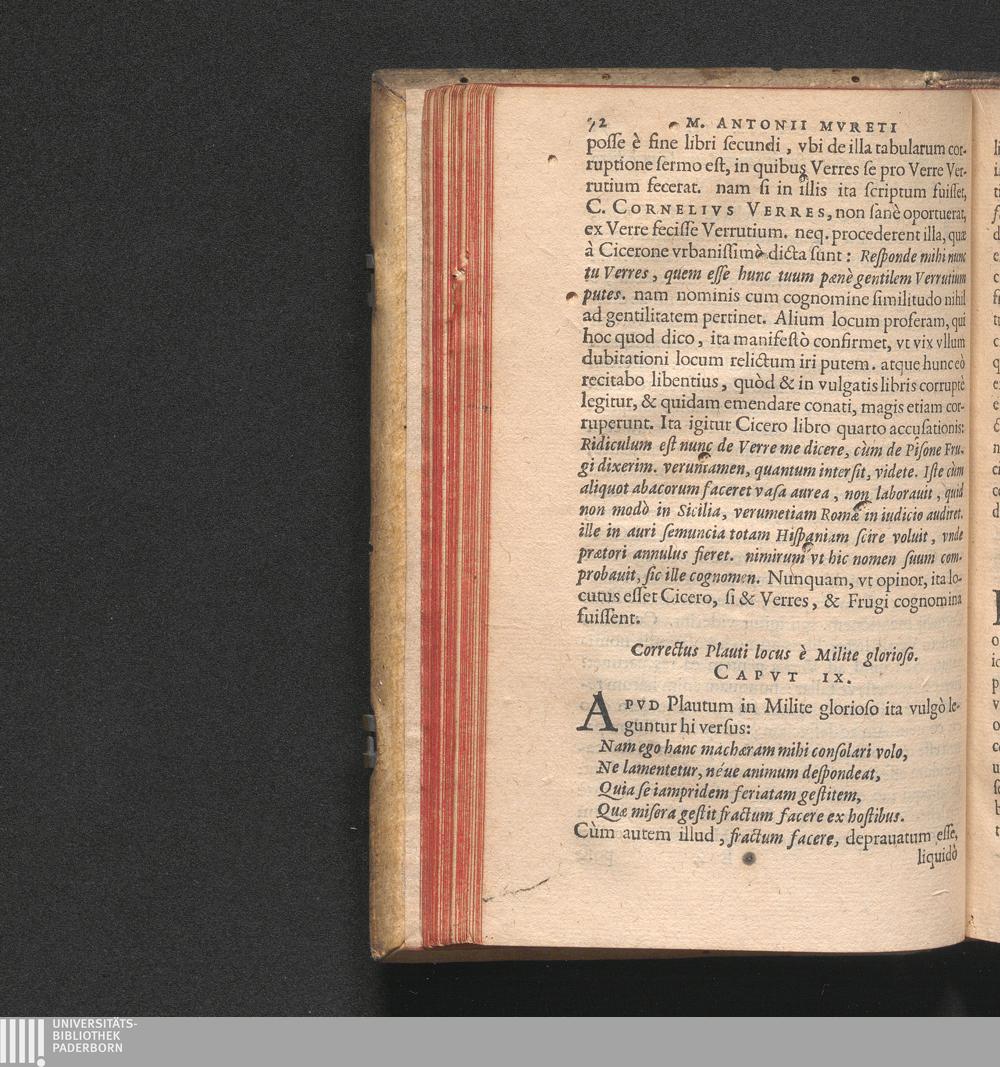 72 M. ANTONII MVRETI
posse è fine libri secundi, vbi de illa tabularum cor-
ruptione sermo est, in quibus Verres se pro Verre Ver-
rutium fecerat. nam si in illis ita scriptum fuisset,
C. CORNELIVS VERRES, non sanè oportuerat,
ex Verre fecisse Verrutium. neq. procederent illa, quæ
à Cicerone vrbanissimè dicta sunt: Responde mihi nunc
tu Verres, quem esse hunc tuum pænè gentilem Verrutium
putes. nam nominis cum cognomine similitudo nihil
ad gentilitatem pertinet. Alium locum proferam, qui
hoc quod dico, ita manifestò confirmet, vt vix vllum
dubitationi locum relictum iri putem. atque hunc eò
recitabo libentius, quòd & in vulgatis libris corruptè
legitur, & quidam emendare conati, magis etiam cor-
ruperunt. Ita igitur Cicero libro quarto accusationis:
Ridiculum est nunc de Verre me dicere, cùm de Pisone Fru-
gi dixerim. veruntamen, quantum intersit, videte. Iste cùm
aliquot abacorum faceret vasa aurea, non laborauit, quid
non modò in Sicilia, verumetiam Romæ in iudicio audiret.
ille in auri semuncia totam Hispaniam scire voluit, vnde
prætori annulus fieret. nimirum vt hic nomen suum com-
probauit, sic ille cognomen. Nunquam, vt opinor, ita lo-
cutus esset Cicero, si & Verres, & Frugi cognomina
fuissent.
Correctus Plauti locus è Milite glorioso.
CAPVT IX.
APVD Plautum in Milite glorioso ita vulgò le-
guntur hi versus:
Nam ego hanc machæram mihi consolari volo,
Ne lamentetur, néue animum despondeat,
Quia se iampridem feriatam gestitem,
Quæ misera gestit fractum facere ex hostibus.
Cùm autem illud, fractum facere, deprauatum esse,
liquidò
UNIVERSITÄTS-
BIBLIOTHEK
PADERBORN